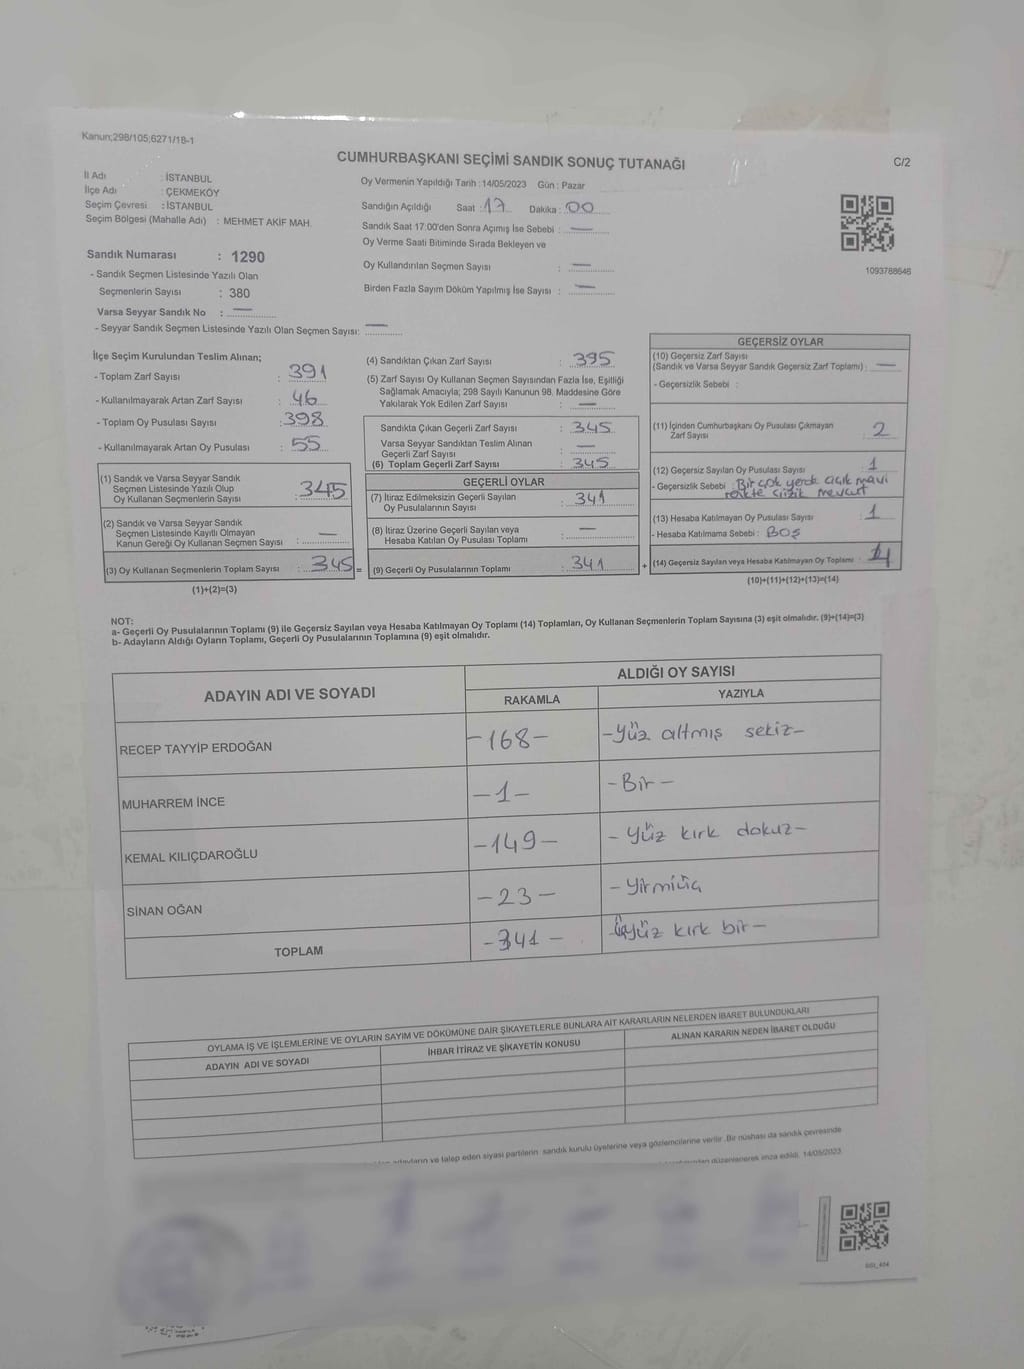 Kanun;298/105;6271/18-1
CUMHURBAŞKANI SEÇİMİ SANDIK SONUÇ TUTANAĞI
C/2
İl Adı : İSTANBUL
İlçe Adı : ÇEKMEKÖY
Seçim Çevresi : İSTANBUL
Seçim Bölgesi (Mahalle Adı) : MEHMET AKİF MAH.
Sandık Numarası : 1290
- Sandık Seçmen Listesinde Yazılı Olan
Seçmenlerin Sayısı : 380
Varsa Seyyar Sandık No : —
- Seyyar Sandık Seçmen Listesinde Yazılı Olan Seçmen Sayısı: —
Oy Vermenin Yapıldığı Tarih : 14/05/2023 Gün : Pazar
Sandığın Açıldığı Saat : 17 Dakika : 00
Sandık Saat 17:00'den Sonra Açılmış İse Sebebi : —
Oy Verme Saati Bitiminde Sırada Bekleyen ve
Oy Kullandırılan Seçmen Sayısı : —
Birden Fazla Sayım Döküm Yapılmış İse Sayısı : —
1093788646
İlçe Seçim Kurulundan Teslim Alınan;
- Toplam Zarf Sayısı : 391
- Kullanılmayarak Artan Zarf Sayısı : 46
- Toplam Oy Pusulası Sayısı : 398
- Kullanılmayarak Artan Oy Pusulası : 55
(1) Sandık ve Varsa Seyyar Sandık
Seçmen Listesinde Yazılı Olup
Oy Kullanan Seçmenlerin Sayısı : 345
(2) Sandık ve Varsa Seyyar Sandık
Seçmen Listesinde Kayıtlı Olmayan
Kanun Gereği Oy Kullanan Seçmen Sayısı : —
(3) Oy Kullanan Seçmenlerin Toplam Sayısı : 345 =
(1)+(2)=(3)
(4) Sandıktan Çıkan Zarf Sayısı : 395
(5) Zarf Sayısı Oy Kullanan Seçmen Sayısından Fazla İse, Eşitliği
Sağlamak Amacıyla; 298 Sayılı Kanunun 98. Maddesine Göre
Yakılarak Yok Edilen Zarf Sayısı : —
Sandıkta Çıkan Geçerli Zarf Sayısı : 345
Varsa Seyyar Sandıktan Teslim Alınan
Geçerli Zarf Sayısı : —
(6) Toplam Geçerli Zarf Sayısı : 345
GEÇERLİ OYLAR
(7) İtiraz Edilmeksizin Geçerli Sayılan
Oy Pusulalarının Sayısı : 341
(8) İtiraz Üzerine Geçerli Sayılan veya
Hesaba Katılan Oy Pusulası Toplamı : —
(9) Geçerli Oy Pusulalarının Toplamı : 341 +
GEÇERSİZ OYLAR
(10) Geçersiz Zarf Sayısı
(Sandık ve Varsa Seyyar Sandık Geçersiz Zarf Toplamı) : —
- Geçersizlik Sebebi :
(11) İçinden Cumhurbaşkanı Oy Pusulası Çıkmayan
Zarf Sayısı : 2
(12) Geçersiz Sayılan Oy Pusulası Sayısı : 1
- Geçersizlik Sebebi : Bir çok yerde açık mavi
renkte çizik mevcut
(13) Hesaba Katılmayan Oy Pusulası Sayısı : 1
- Hesaba Katılmama Sebebi : BOŞ
(14) Geçersiz Sayılan veya Hesaba Katılmayan Oy Toplamı : 4
(10)+(11)+(12)+(13)=(14)
NOT:
a- Geçerli Oy Pusulalarının Toplamı (9) ile Geçersiz Sayılan veya Hesaba Katılmayan Oy Toplamı (14) Toplamları, Oy Kullanan Seçmenlerin Toplam Sayısına (3) eşit olmalıdır. (9)+(14)=(3)
b- Adayların Aldığı Oyların Toplamı, Geçerli Oy Pusulalarının Toplamına (9) eşit olmalıdır.
ADAYIN ADI VE SOYADI
ALDIĞI OY SAYISI
RAKAMLA YAZIYLA
RECEP TAYYİP ERDOĞAN -168- -Yüz altmış sekiz-
MUHARREM İNCE -1- -Bir-
KEMAL KILIÇDAROĞLU -149- -Yüz kırk dokuz-
SİNAN OĞAN -23- -Yirmiüç
TOPLAM -341- -Üçyüz kırk bir-
OYLAMA İŞ VE İŞLEMLERİNE VE OYLARIN SAYIM VE DÖKÜMÜNE DAİR ŞİKAYETLERLE BUNLARA AİT KARARLARIN NELERDEN İBARET BULUNDUKLARI
ADAYIN ADI VE SOYADI İHBAR İTİRAZ VE ŞİKAYETİN KONUSU ALINAN KARARIN NEDEN İBARET OLDUĞU
adayların ve talep eden siyasi partilerin sandık kurulu üyelerine veya gözlemcilerine verilir. Bir nüshası da sandık çevresinde
düzenlenerek imza edildi. 14/05/2023